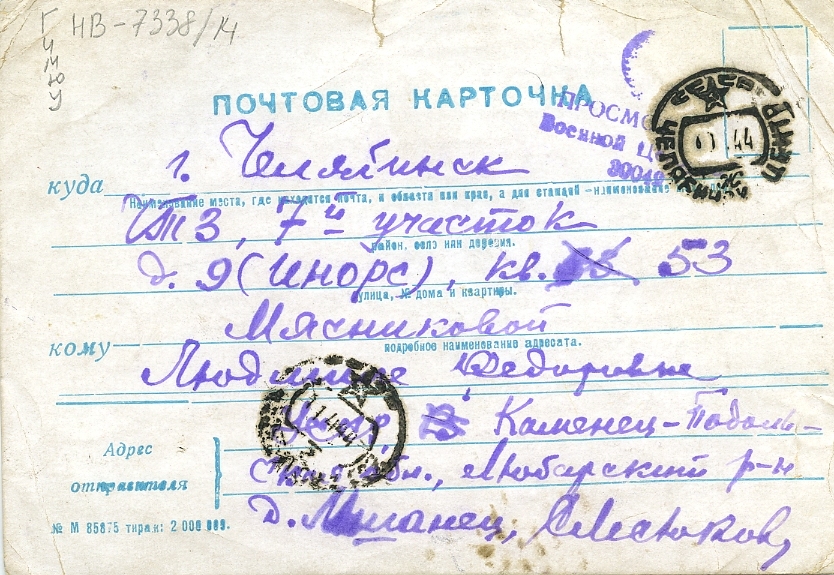 НВ-7338/14
ПОЧТОВАЯ КАРТОЧКА
ПРОСМО
Военной Ц
44
куда г. Челябинск
Наименование места, где находится почта, и области или края, а для станций - наименование
7й участок
район, село или деревня.
д. 9 (Инорс), кв. 53
улица, № дома и квартиры.
кому Мясниковой
подробное наименование адресата.
Людмиле Федоровне
Каменец-Подоль-
Адрес
отправителя
обл., Любарский р-н
д.
№ М 85875 тираж: 2 000 000.